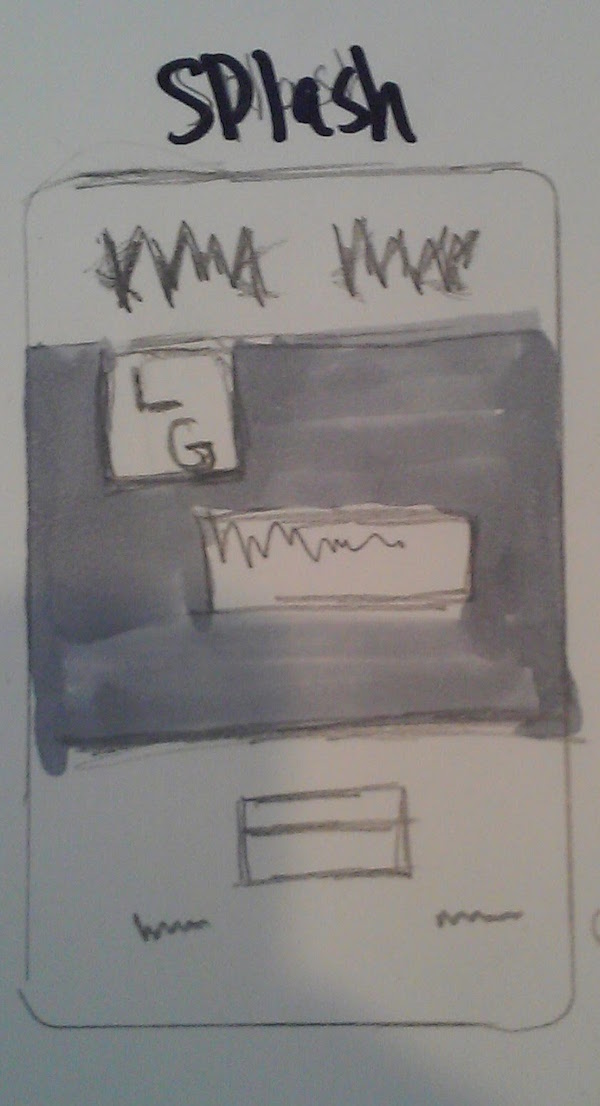 SPlash
L
G